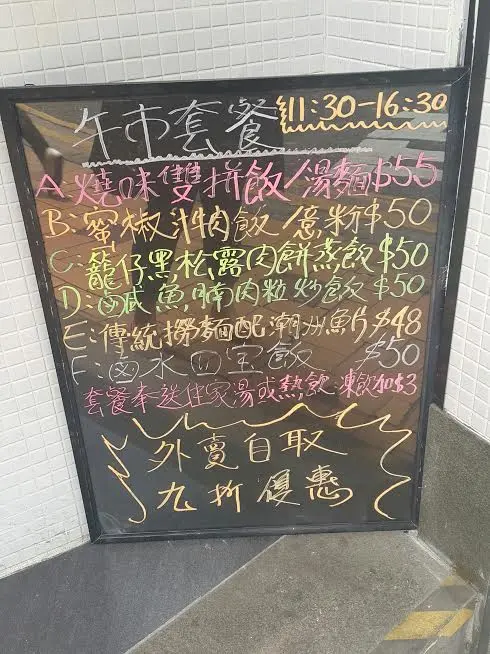 午市套餐 11:30-16:30
A 燒味雙拼飯/湯麵$55
B:蜜椒汁牛肉飯/意粉$50
C:籠仔黑松露肉餅蒸飯$50
D:鹹魚腩肉粒炒飯$50
E:傳統撈麵配潮州魚片$48
F:鹵水四宝飯 $50
套餐奉送住家湯或熱飲 凍飲加$3
外賣自取
九折優惠